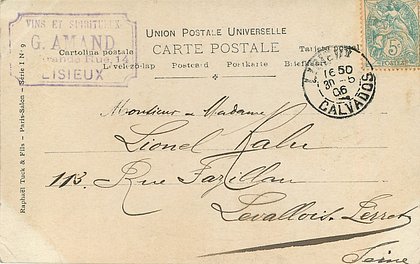 VINS ET SPIRITUEUX
G. AMAND
Grande Rue, 14
LISIEUX
UNION POSTALE UNIVERSELLE
CARTE POSTALE
Cartolina postale
Levelező-lap Postcard Postkarte
5c
LISIEUX
16 50
30 - 5
06
CALVADOS
Raphaël Tuck & Fils - Paris-Salon - Série I No 9
Monsieur & Madame
Lionel Kahn
113, Rue Fazillau
Levallois-Perret
Seine